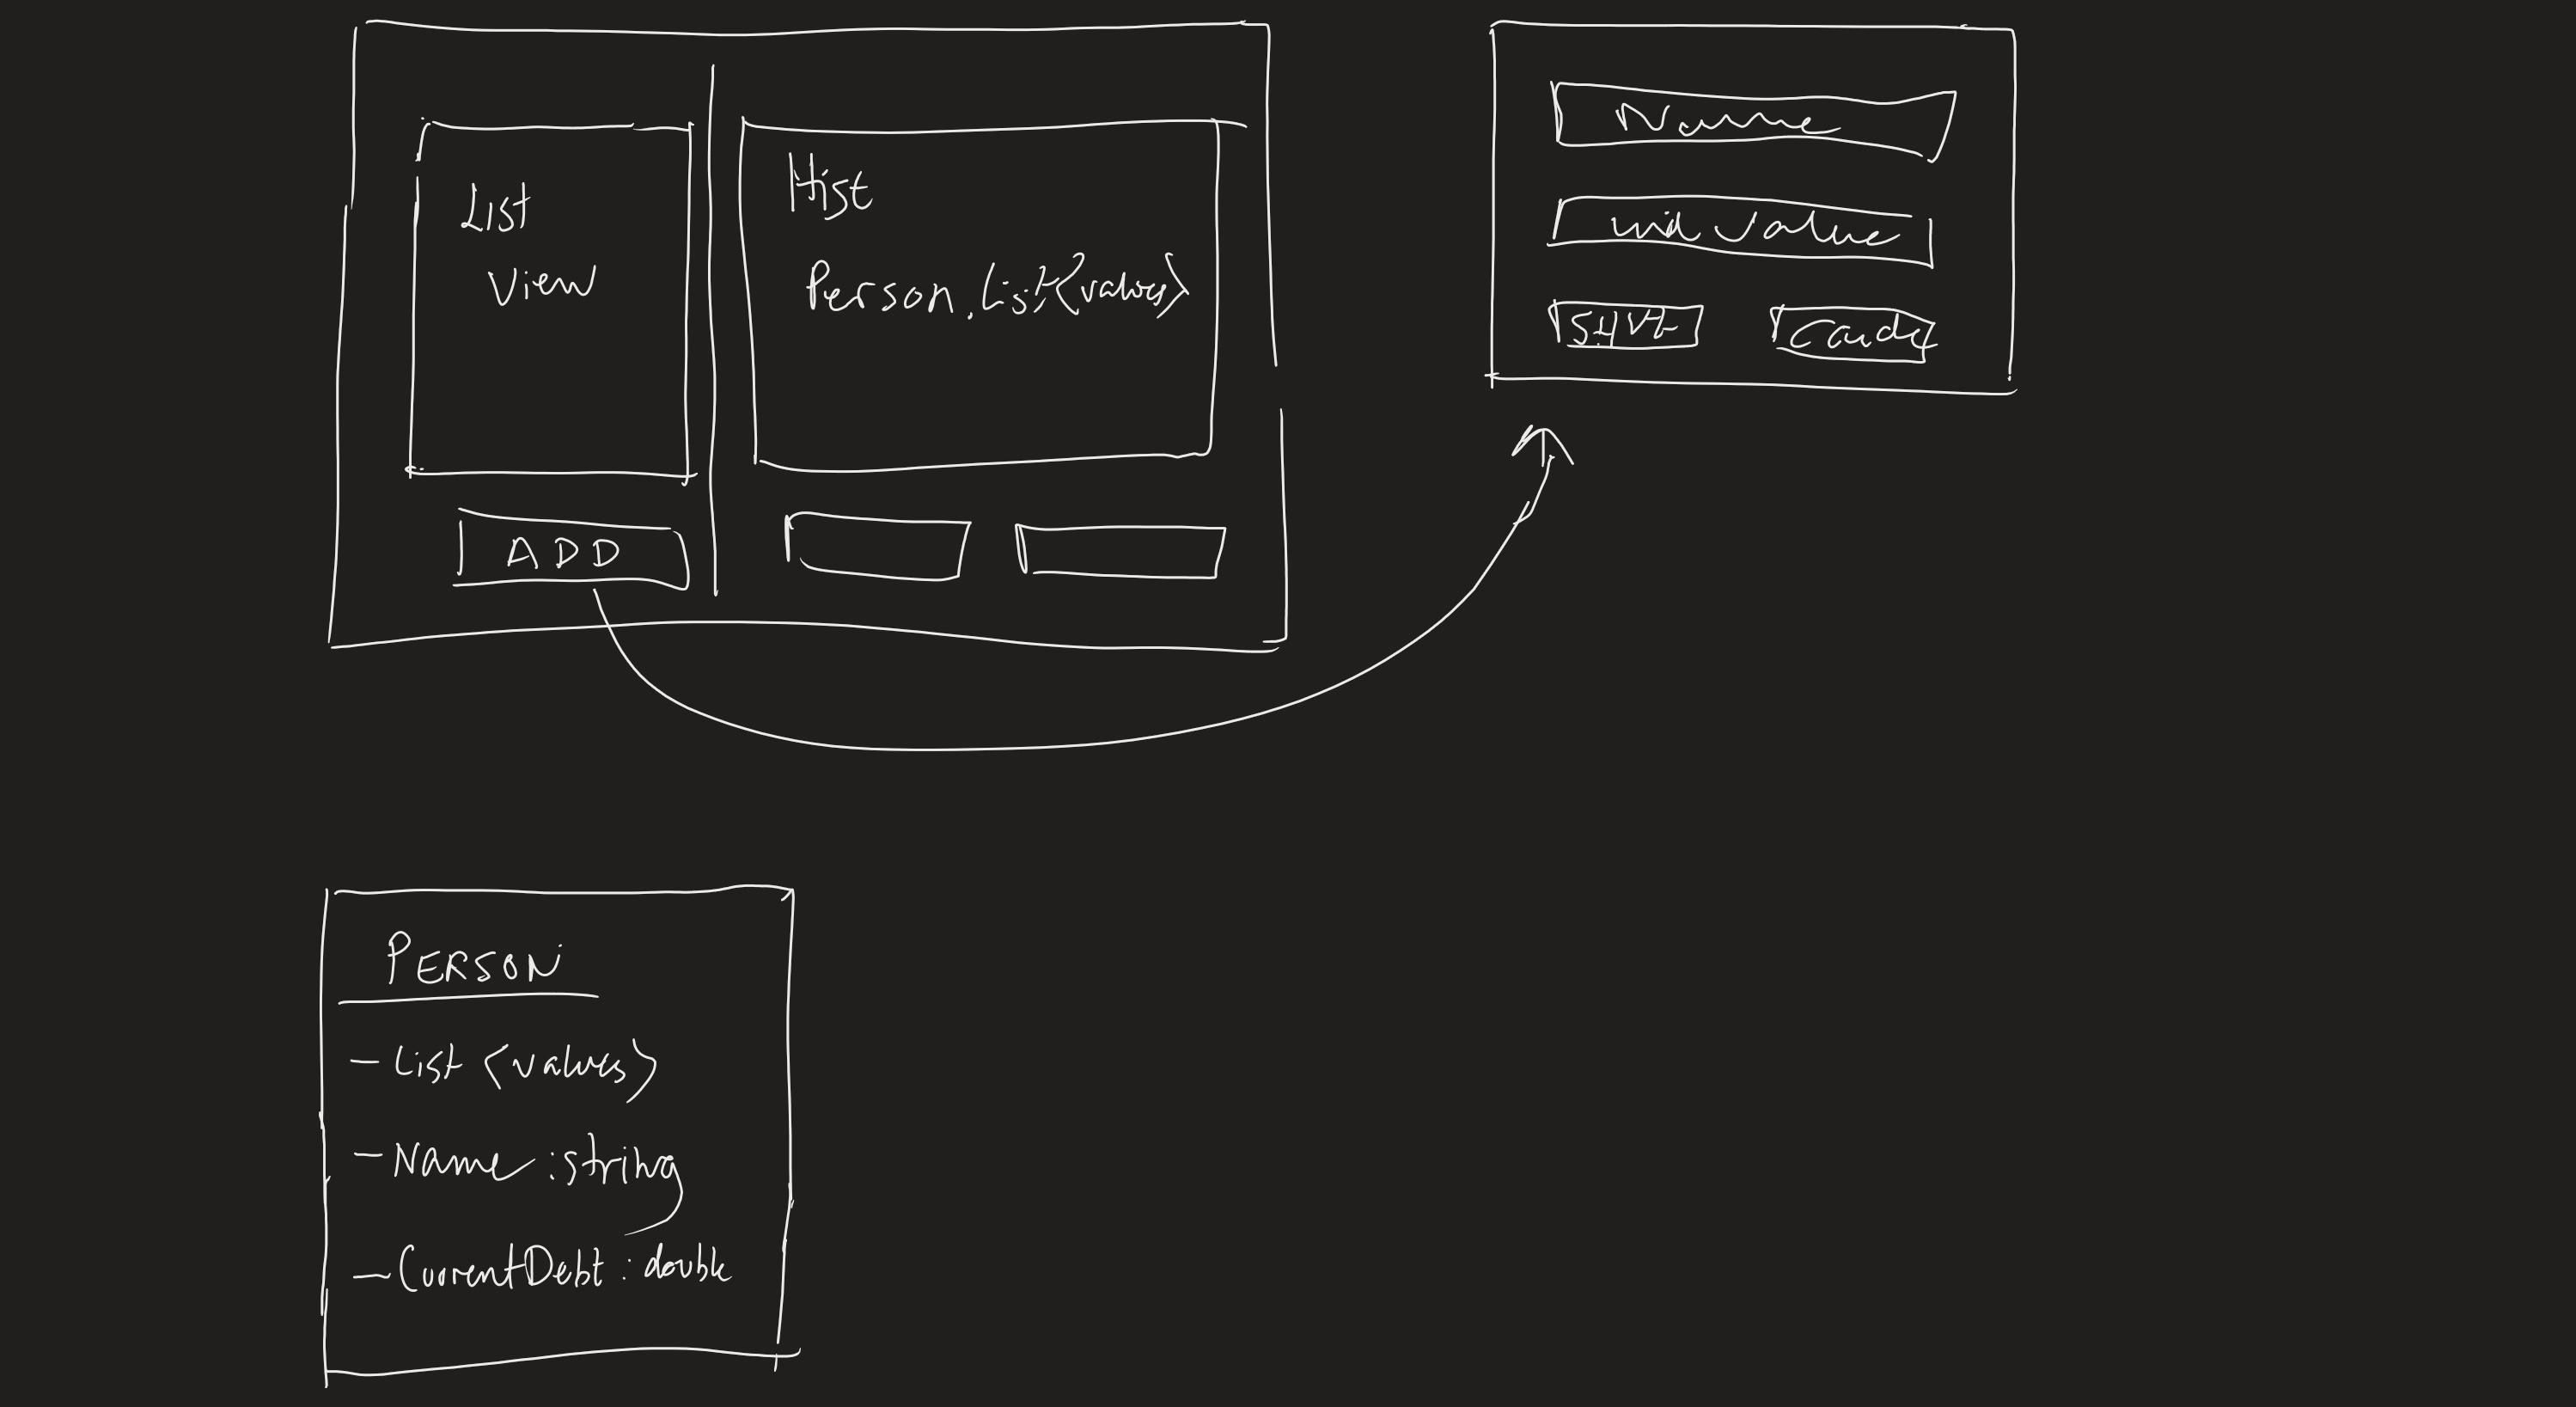 List
View
ADD
Hist
Person.List<values>
Name
Value
SAVE
PERSON
- List <values>
- Name :string
- CurrentDebt : double